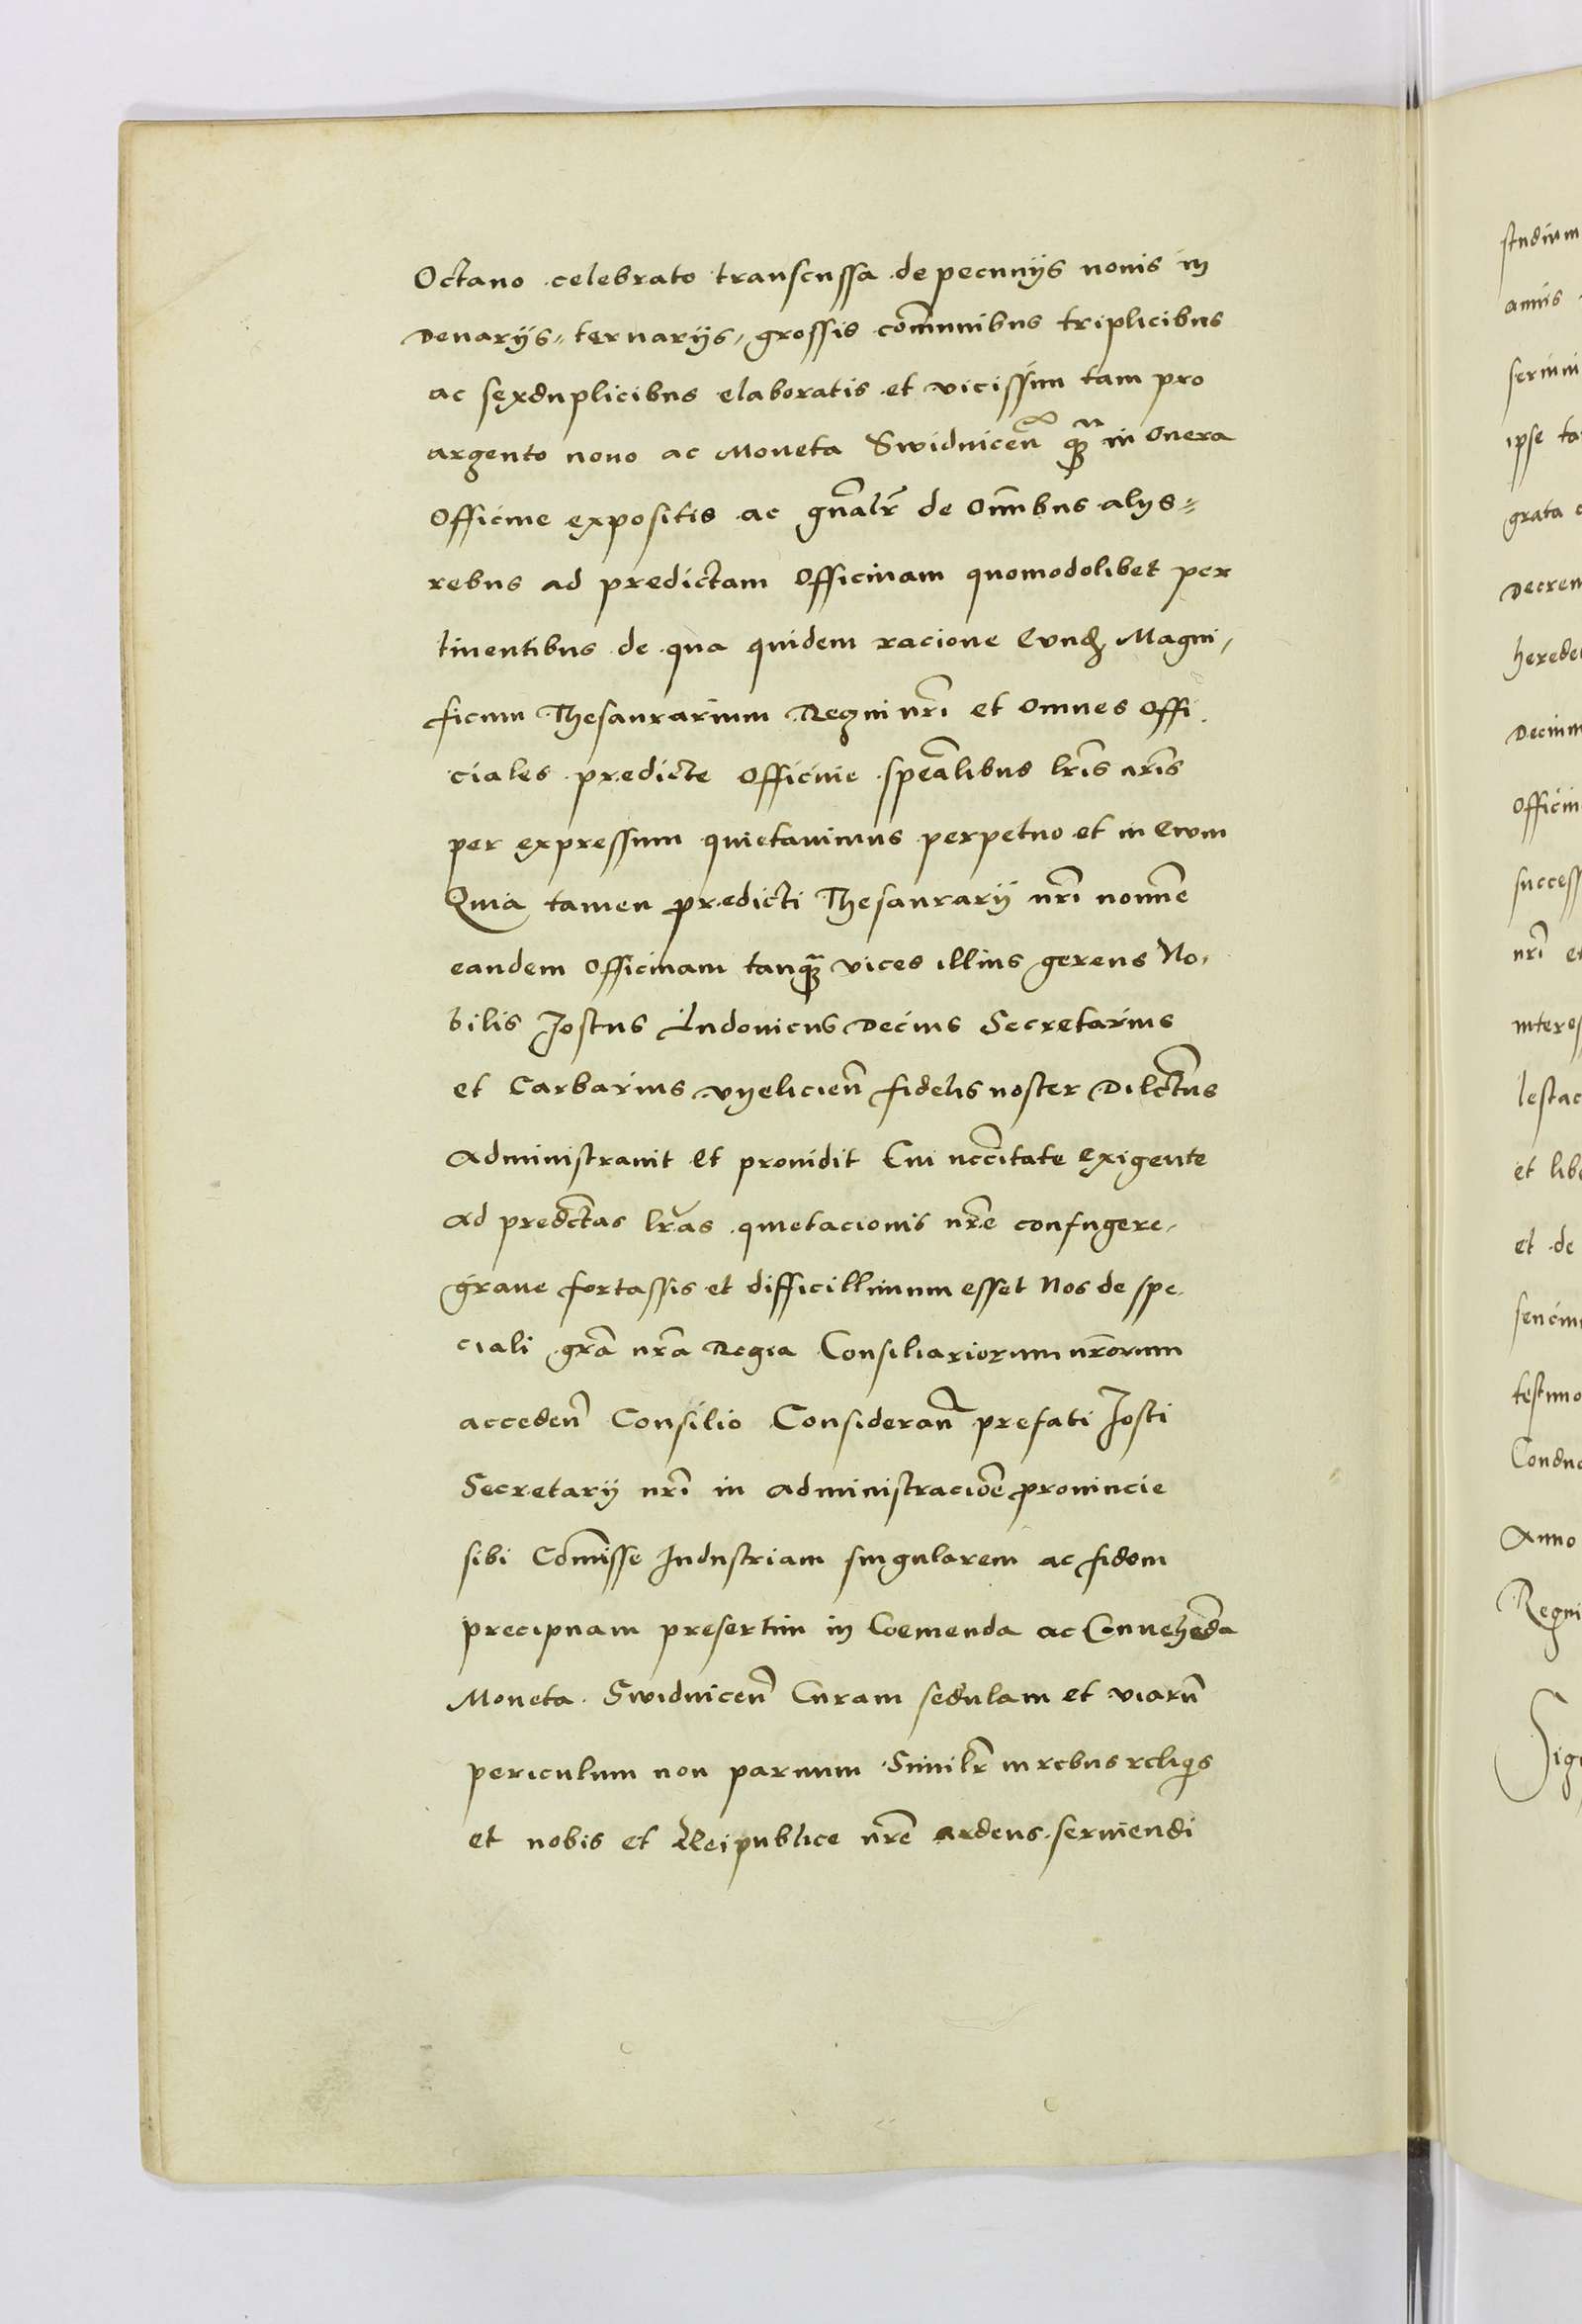 Octauo celebrato transcussa de pecunijs nouis in
Denarijs, ternarijs, grossis com̄unibus triplicibus
ac sexduplicibus elaboratis et vicissim tam pro
argento nouo ac Moneta Swidnicen̄ q̄ in Onera
Officine expositis ac gn̄alr̄ de Om̄ibus alys
rebus ad predictam Officinam quomodolibet per
tinentibus de qua quidem racione Eund Magni,
ficum Thesaurarium Regni nr̄i et Omnes Offi
ciales predicte Officine spec̄alibus lr̄is nr̄is
per expressum quietauimus perpetuo et in Ewm
Quia tamen predicti Thesaurarij nr̄i nom̄ne
eandem Officinam tanq̄ vices illius gerens No,
bilis Jostus Ludouicus Decius Secretarius
et Carbarius vyelicien̄ fidelis noster Dilc̄tus
Administrauit Et prouidit Cui necc̄itate Exigente
Ad predc̄tas lr̄as quietacionis nr̄e confugere,
graue fortassis et difficillimum esset Nos de spe
ciali gr̄a nr̄a Regia Consiliariorum nr̄orum
acceden̄ Consilio Consideran̄ prefati Josti
Secretarij nr̄i in administracioē prouincie
sibi Com̄isse Industriam singularem ac fidem
precipuam presertim in Coemenda ac Conuehēda
Moneta Swidnicen̄ Curam sedulam et viarū
periculum non paruum Similr̄ in rebus reliqis
et nobis et Reipublice nr̄e ardens seruiendi
studium
annis
ipse ta
grata
Decreu
herede
Officin
success
nr̄i et
interes
lestac
et libe
et de
testimo
Condu
Anno
Regni
Sig